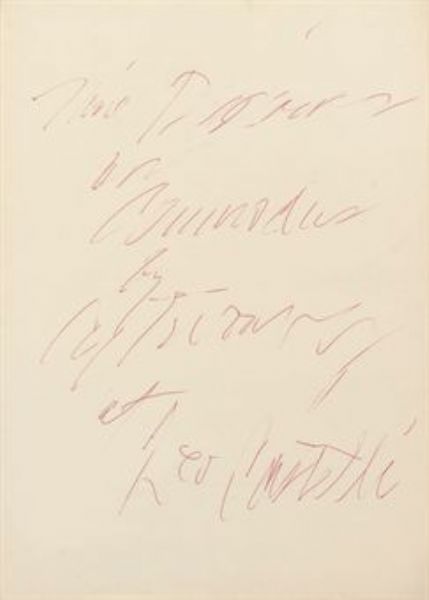 Nine Discourses
on
Commodus
by
Cy Twombly
at
Leo Castelli